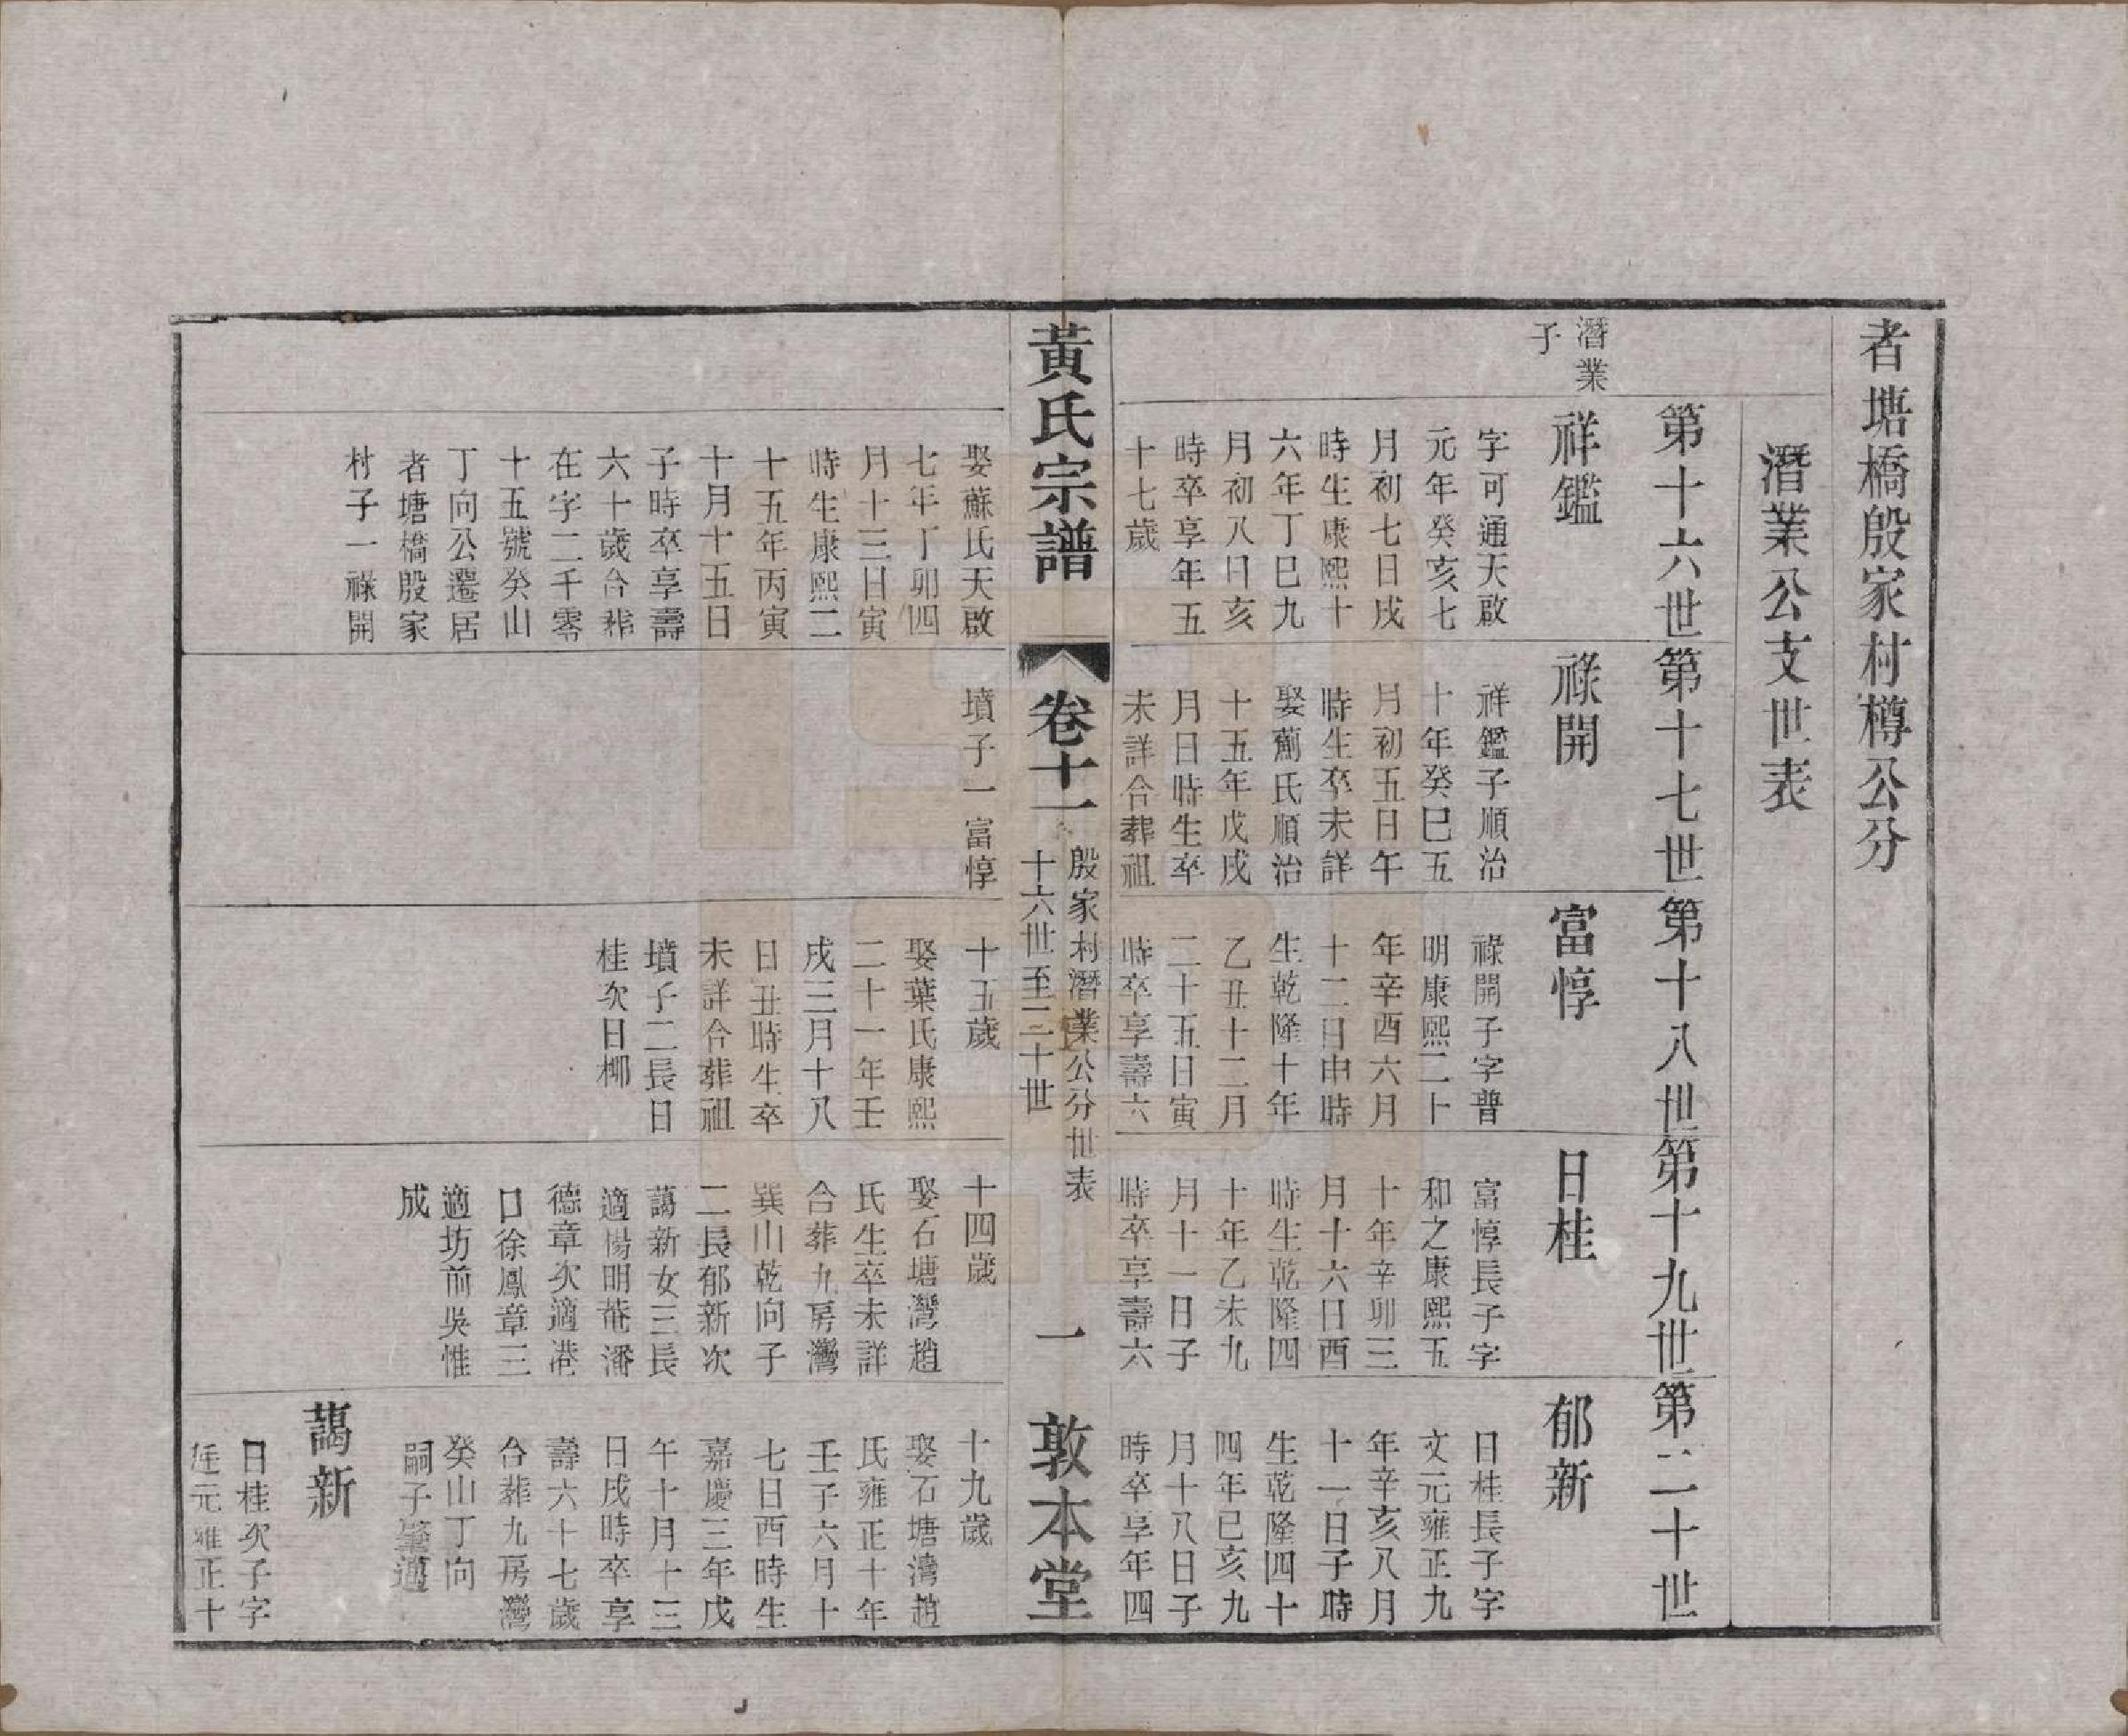 者塘橋殷家村樽公分
潛業公支世表
第十六世
第十七世
第十八世
第十九世
第二十世
潛業
子
祥鑑
字可通天啟
元年癸亥七
月初七日戌
時生康熙十
六年丁巳九
月初八日亥
時卒享年五
十七歲
娶蘇氏天啟
七年丁卯四
月十三日寅
時生康熙二
十五年丙寅
十月十五日
子時卒享壽
六十歲合葬
在字二千零
十五號癸山
丁向公遷居
者塘橋殷家
村子一祿開
祿開
祥鑑子順治
十年癸巳五
月初五日午
時生卒未詳
娶薊氏順治
十五年戊戌
月日時生卒
未詳合葬祖
墳子一富惇
富惇
祿開子字普
明康熙二十
年辛酉六月
十二日申時
生乾隆十年
乙丑十二月
二十五日寅
時卒享壽六
十五歲
娶葉氏康熙
二十一年壬
戌三月十八
日丑時生卒
未詳合葬祖
墳子二長日
桂次日栁
日桂
富惇長子字
和之康熙五
十年辛卯三
月十六日酉
時生乾隆四
十年乙未九
月十一日子
時卒享壽六
十四歲
娶石塘灣趙
氏生卒未詳
合葬九房灣
巽山乾向子
二長郁新次
藹新女三長
適楊明菴潘
德章次適港
口徐鳳章三
適坊前吳惟
成
郁新
日桂長子字
文元雍正九
年辛亥八月
十一日子時
生乾隆四十
四年己亥九
月十八日子
時卒享年四
十九歲
娶石塘灣趙
氏雍正十年
壬子六月十
七日酉時生
嘉慶三年戊
午十月十三
日戌時卒享
壽六十七歲
合葬九房灣
癸山丁向
嗣子肇適
藹新
日桂次子字
廷元雍正十
黃氏宗譜
卷十一
殷家村潛業公分世表
十六世至二十世
一
敦本堂